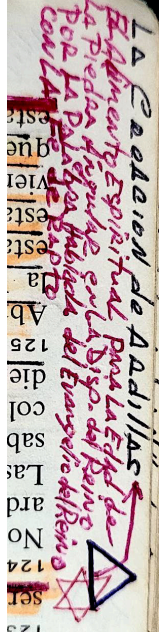 La Creacion de Ardillas
El Alimento Espiritual para la Edad de
La Piedra Angular en la Disp. del Reino
Por La Palabra Hablada del Evangelio del Reino
con La
esta
que
vien
esta
esta
La
Ab
125
die
col
sab
Las
ard
No
124
ser
123